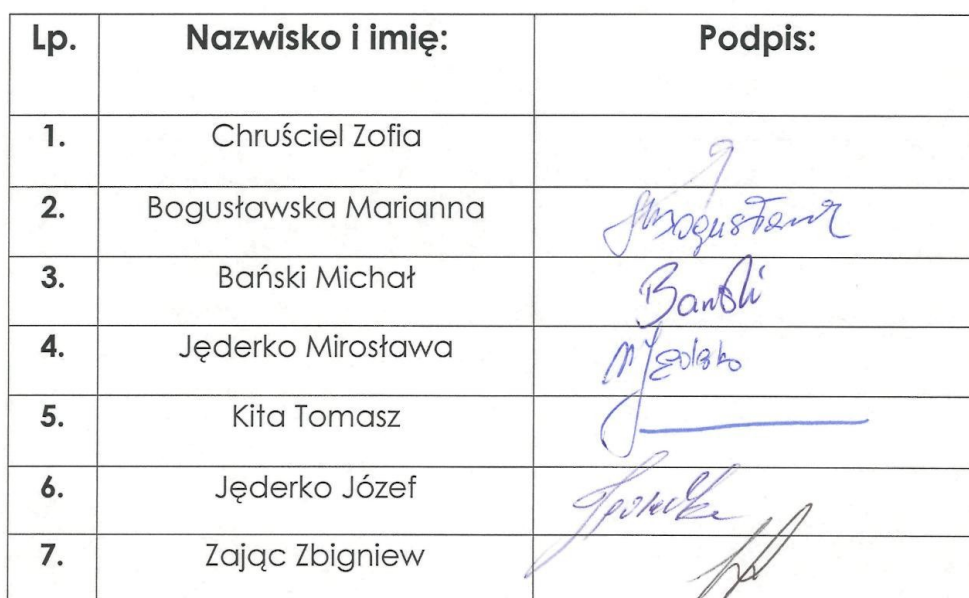 Lp. Nazwisko i imię: Podpis:
1. Chruściel Zofia
2. Bogusławska Marianna
3. Bański Michał Bański
4. Jęderko Mirosława M Jęderko
5. Kita Tomasz
6. Jęderko Józef
7. Zając Zbigniew